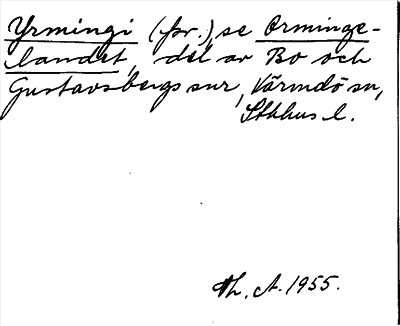 Yrmingi (for.), se Orminge-
landet, del av Bo och
Gustavsbergs snr, Värmdö sn,
Sthlms l.
Th. A. 1955.